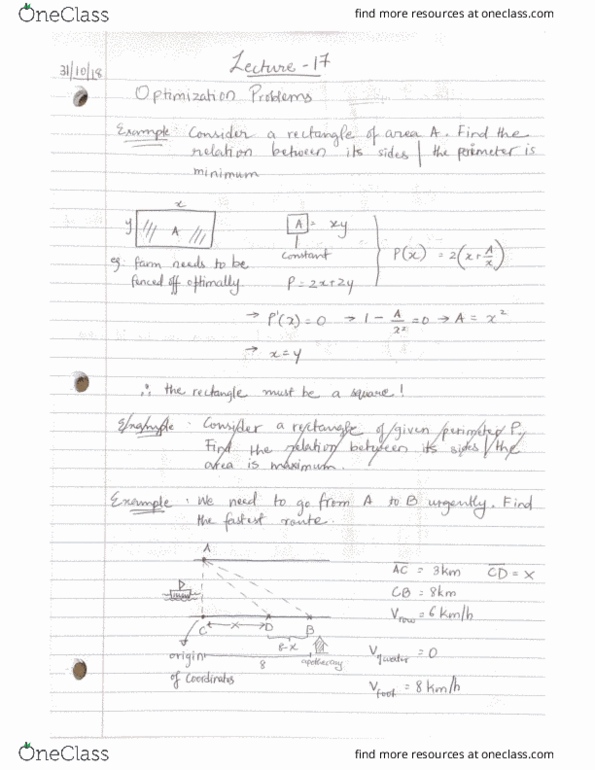 OneClass
find more resources at oneclass.com
31/10/18
Lecture - 17
Optimization Problems
Example: Consider a rectangle of area A. Find the
relation between its sides | the perimeter is
minimum
x
y
A
A = xy
constant
P = 2x+2y
P(x) = 2(x+A/x)
eg. farm needs to be
fenced off optimally
→ P'(x) = 0 → 1 - A/x² = 0 → A = x²
→ x = y
∴ the rectangle must be a square!
Example: Consider a rectangle of given perimeter P.
Find the relation between its sides | the
area is maximum.
Example: We need to go from A to B urgently. Find
the fastest route.
A
AC = 3km CD = x
CB = 8km
V row = 6 km/h
C x D B
8-x
origin 8 apothecary
of coordinates
V water = 0
V foot = 8 km/h
OneClass
find more resources at oneclass.com